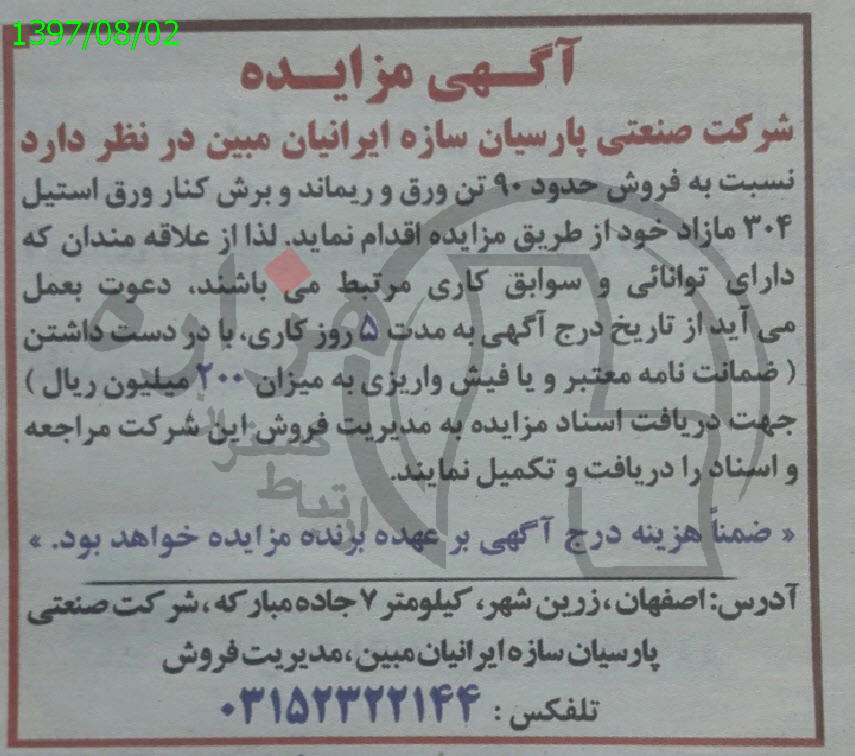 1397/08/02
آگهی مزایده
شرکت صنعتی پارسیان سازه ایرانیان مبین در نظر دارد
نسبت به فروش حدود ۹۰ تن ورق و ریماند و برش کنار ورق استیل
۳۰۴ مازاد خود از طریق مزایده اقدام نماید. لذا از علاقه مندان که
دارای توانائی و سوابق کاری مرتبط می باشند، دعوت بعمل
می آید از تاریخ درج آگهی به مدت ۵ روز کاری، با در دست داشتن
( ضمانت نامه معتبر و یا فیش واریزی به میزان ۲۰۰ میلیون ریال )
جهت دریافت اسناد مزایده به مدیریت فروش این شرکت مراجعه
و اسناد را دریافت و تکمیل نمایند.
« ضمناً هزینه درج آگهی بر عهده برنده مزایده خواهد بود. »
آدرس: اصفهان، زرین شهر، کیلومتر ۷ جاده مبارکه، شرکت صنعتی
پارسیان سازه ایرانیان مبین، مدیریت فروش
تلفکس : ۰۳۱۵۲۳۲۲۱۴۴
هزاره
ارتباط